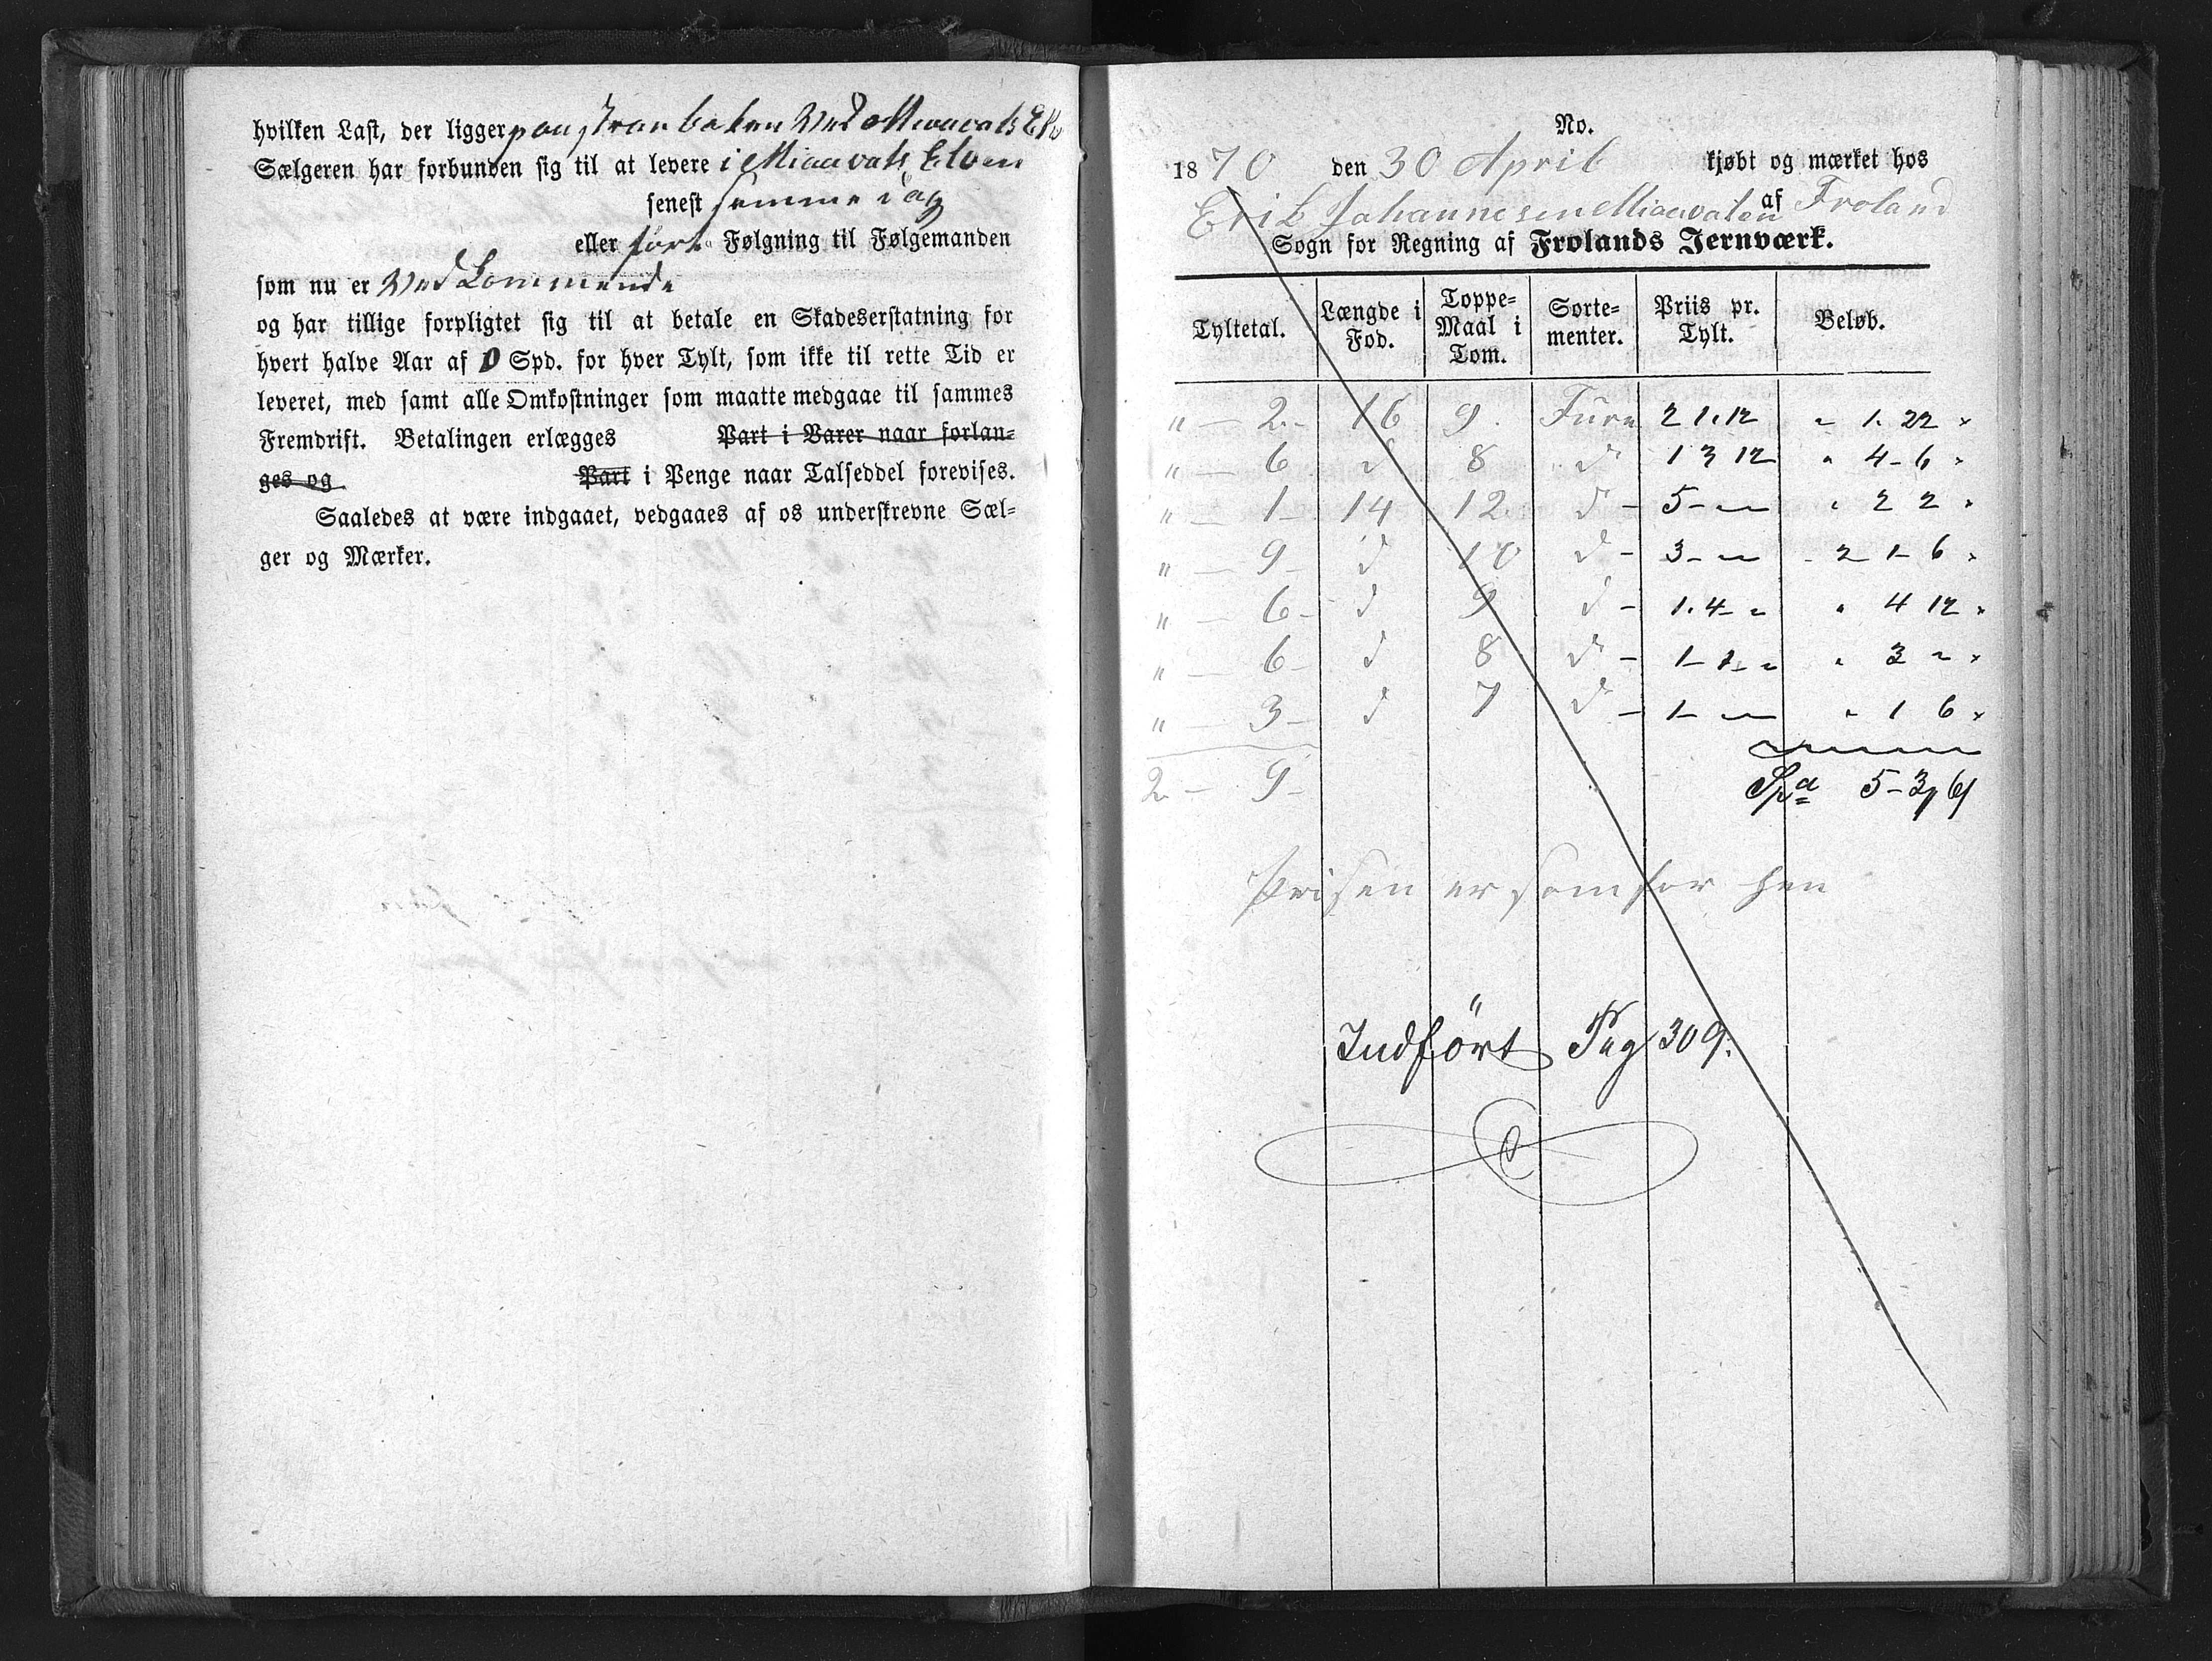 hvilken Last, der ligger paa stranbaken ved Miaavats Elv
Sælgeren har forbunden sig til at levere i Miaavats Elven
senest samme dag
eller förte Følgning til Følgemanden
som nu er Vedkommende
og har tillige forpligtet sig til at betale en Skadeserstatning for
hvert halve Aar af 0 Spd. for hver Tylt, som ikke til rette Tid er
leveret, med samt alle Omkostninger som maatte medgaae til sammes
Fremdrift. Betalingen erlægges Part i Varer naar forlan-
ges og Part i Penge naar Talseddel forevises.
Saaledes at være indgaaet, vedgaaes af os underskrevne Sæl-
ger og Mærker.
No.
1870 den 30 April kjøbt og mærket hos
Erik Johannesen Miaavaten af Froland
Sogn for Regning af Frolands Jernværk.
Tyltetal. Længde i Fod. Toppe-Maal i Tom. Sorte-menter. Priis pr. Tylt. Beløb.
" — 2 - 16 9 . Furu 2 1.12 " 1. 22 "
" — 6 d 8 d 1 3 12 " 4 - 6 "
" — 1 - 14 12 d - 5 - " " 2 2 "
" — 9 - d 10 d - 3 - " - 2 1 - 6 "
" — 6 - d 9 d - 1. 4 - " " 4 12 "
" — 6 - d 8 d - 1 - 1 - " " 3 " "
" — 3 - d 7 d - 1 - " " 1 6 "
2 — 9 - Spd 5 - 3, 6
Prisen er som for hen
Indfört Pag 309.